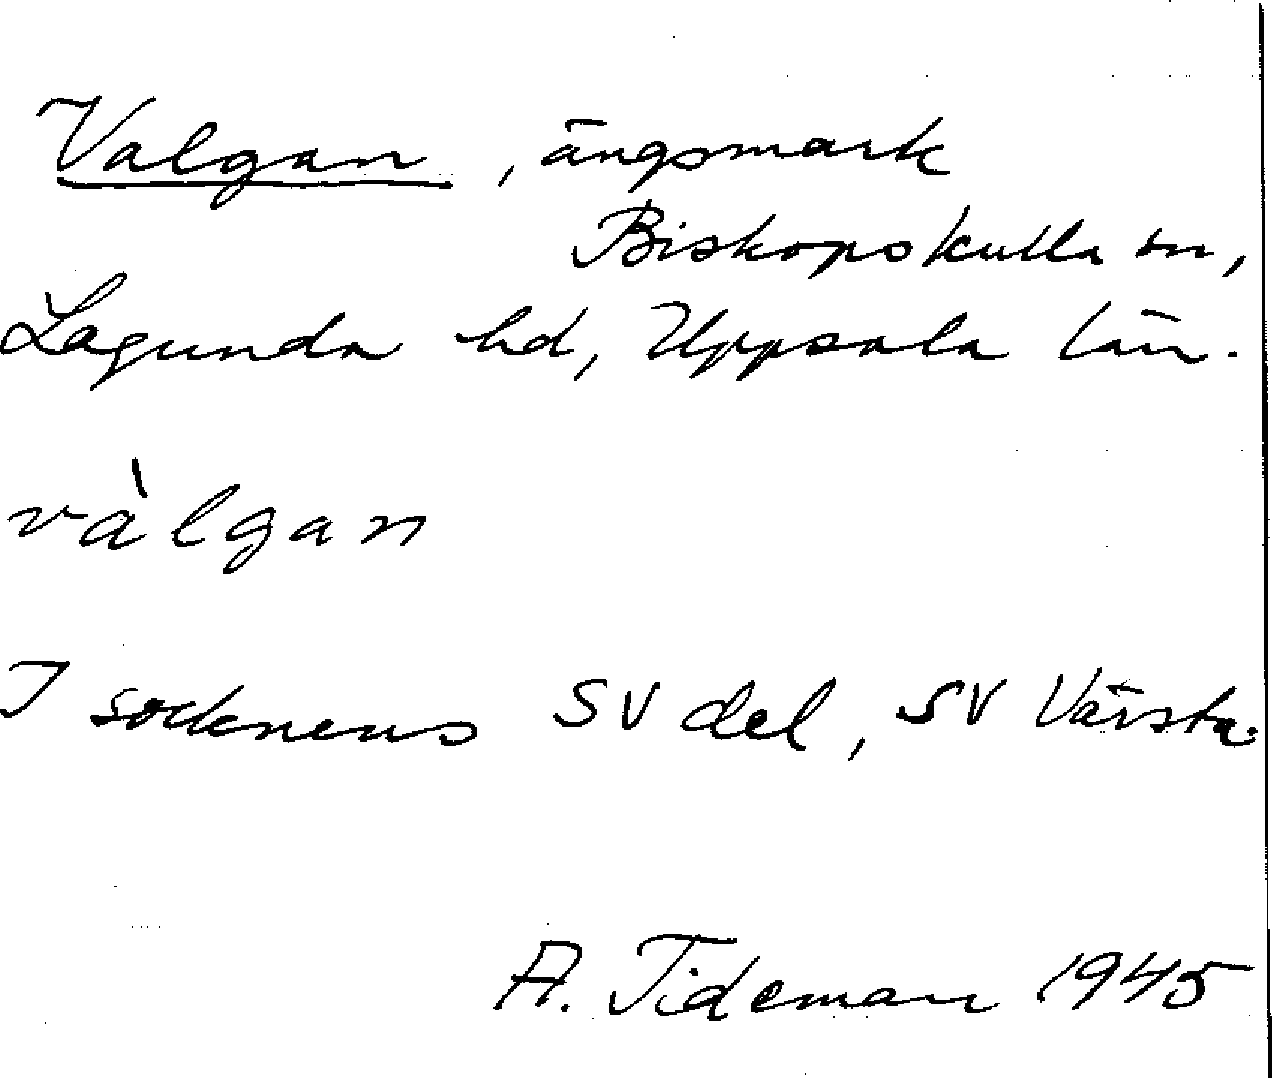 Valgan, ängsmark
Biskopskulla sn,
Lagunda hd, Uppsala län.
vàlgan
I socknens SV del, SV Värsta.
A. Tideman 1945